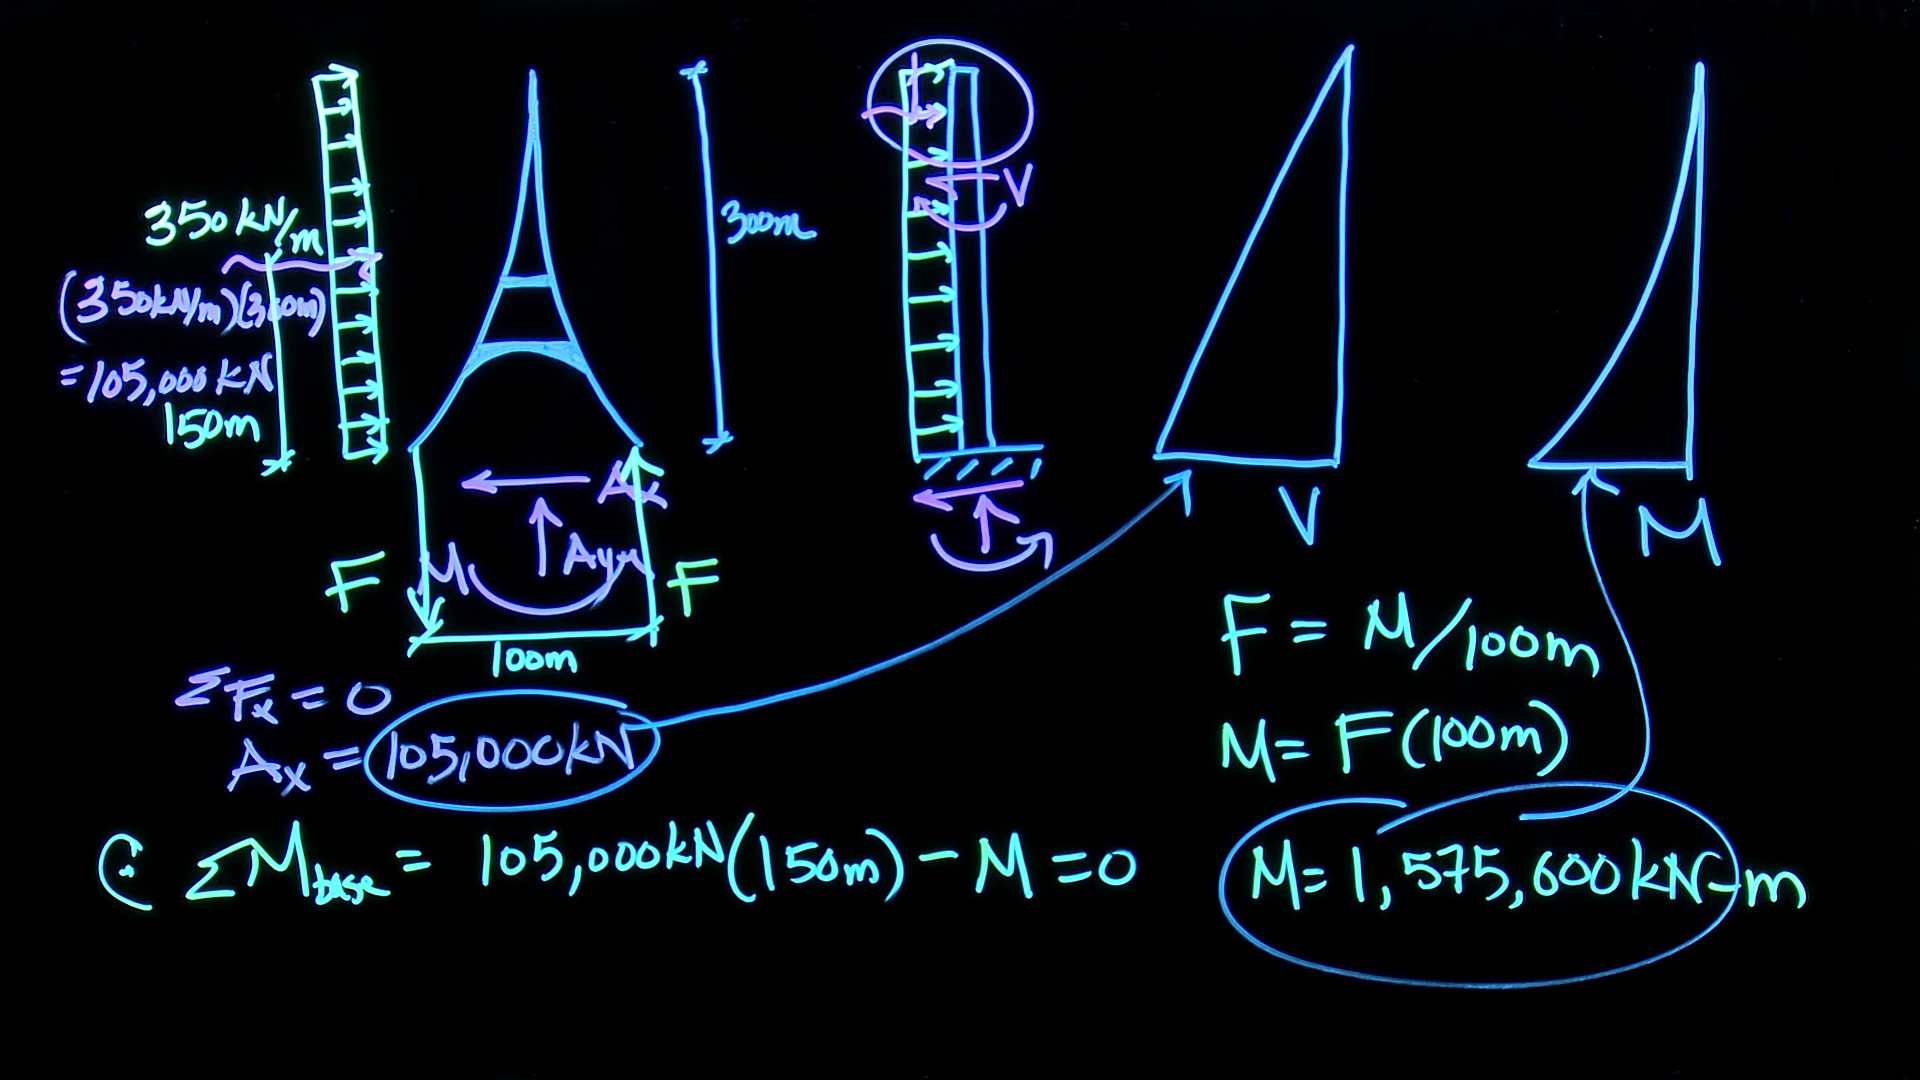 350 kN/m
(350kN/m)(300m)
= 105,000 kN
150m
300m
V
Ax
Ay
M
F
F
100m
V
M
ΣFx = 0
Ax = 105,000kN
ΣMbase = 105,000kN(150m) - M = 0
F = M/100m
M = F(100m)
M = 1,575,600 kN-m